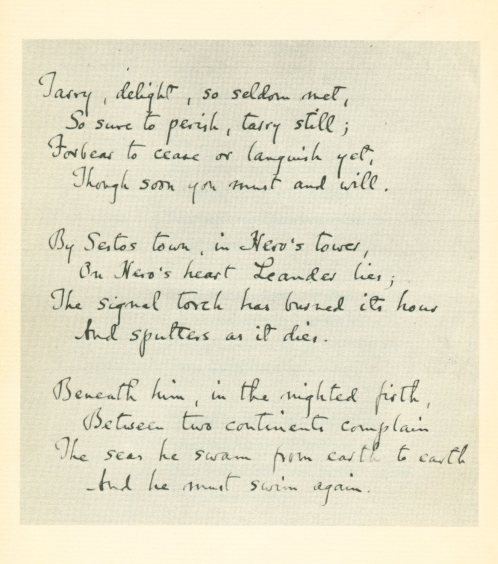 Tarry, delight, so seldom met,
So sure to perish, tarry still;
Forbear to cease or languish yet,
Though soon you must and will.
By Sestos town, in Hero's tower,
On Hero's heart Leander lies;
The signal torch has burned its hour
And sputters as it dies.
Beneath him, in the nighted firth,
Between two continents complain
The seas he swam from earth to earth
And he must swim again.